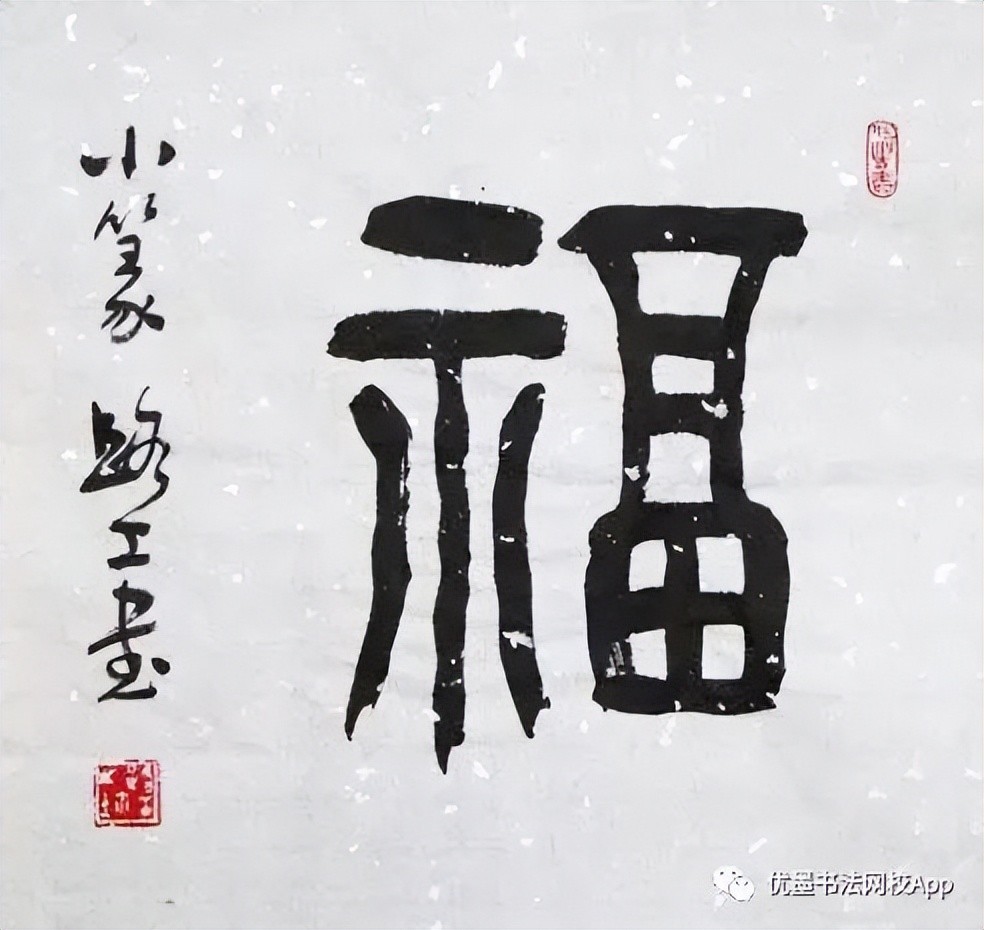 福
小篆 路工书
优墨书法网校App